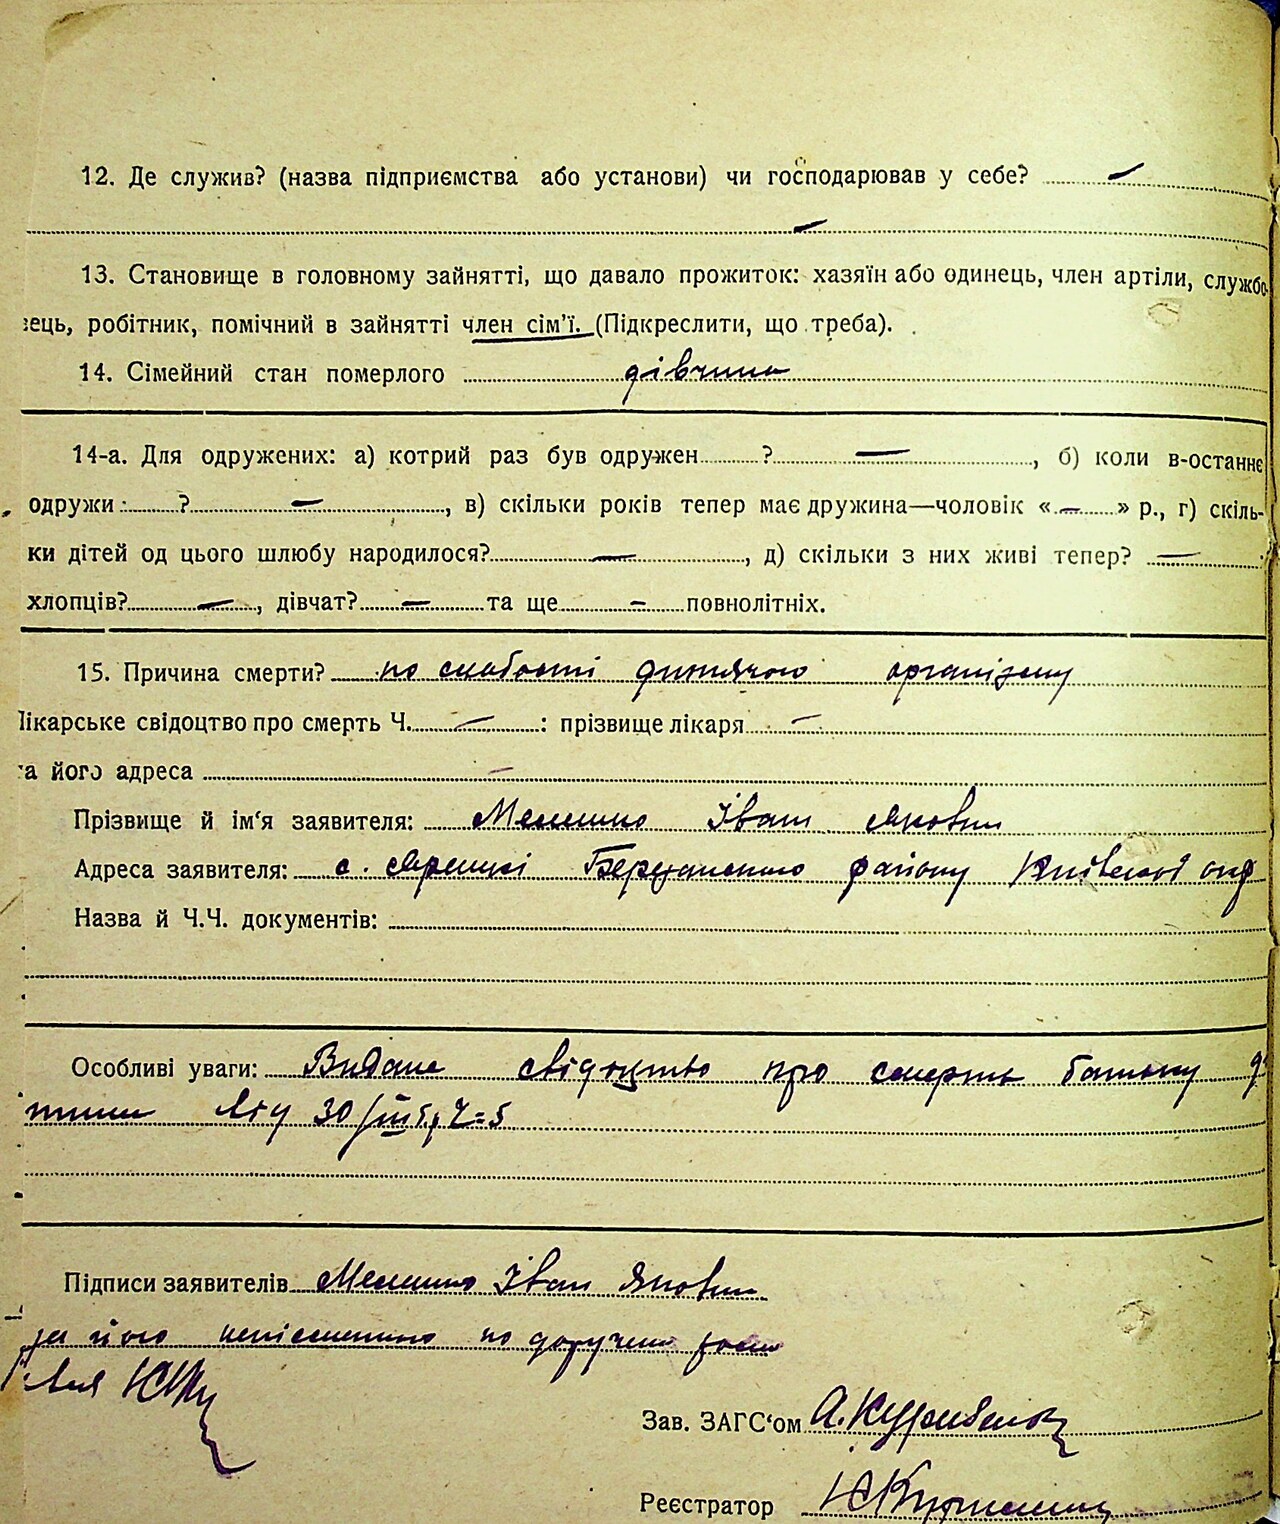 12. Де служив? (назва підприємства або установи) чи господарював у себе? —
—
13. Становище в головному зайнятті, що давало прожиток: хазяїн або одинець, член артіли, службо-
вець, робітник, помічний в зайнятті член сім'ї. (Підкреслити, що треба).
14. Сімейний стан померлого дівчина
14-а. Для одружених: а) котрий раз був одружен ? —, б) коли в-останнє
одружи ? —, в) скільки років тепер має дружина—чоловік «—» р., г) скіль-
ки дітей од цього шлюбу народилося? —, д) скільки з них живі тепер? —
хлопців? —, дівчат? — та ще - повнолітніх.
15. Причина смерти? по слабості дитячого організму
Лікарське свідоцтво про смерть Ч. — : прізвище лікаря —
та його адреса —
Прізвище й ім'я заявителя: Іван Якович
Адреса заявителя: с. Яреські Березанського району Київської окр
Назва й Ч.Ч. документів:
Особливі уваги: Видане свідоцтво про смерть батьку ди
тини від 30/III Ч=5
Підписи заявителів Іван Якович
за його неписьменного по доручению
Зав. ЗАГС'ом А.
Реєстратор